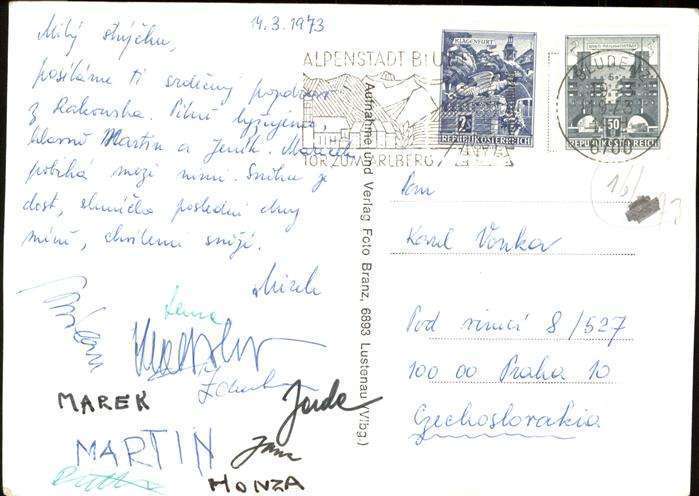 14.3.1973
Milý strýčku,
posíláme ti srdečný pozdrav
z Rakouska. Pilně lyžujeme
hlavně Martin a Jeník. Marek
pobíhá mezi nimi. Sněhu je
dost, sluníčko poslední dny
méně, chvílemi sněží.
Mirek
MAREK
MARTIN
HONZA
ALPENSTADT BLUDENZ
TOR ZUM ARLBERG
KLAGENFURT
2S
REPUBLIK ÖSTERREICH
150
REPUBLIK ÖSTERREICH
BLUDENZ
6700
Aufnahme und Verlag Foto Branz, 6893 Lustenau (Vlbg.)
Pan
Karel Vonka
Pod 8/527
100 00 Praha 10
Czechoslovakia